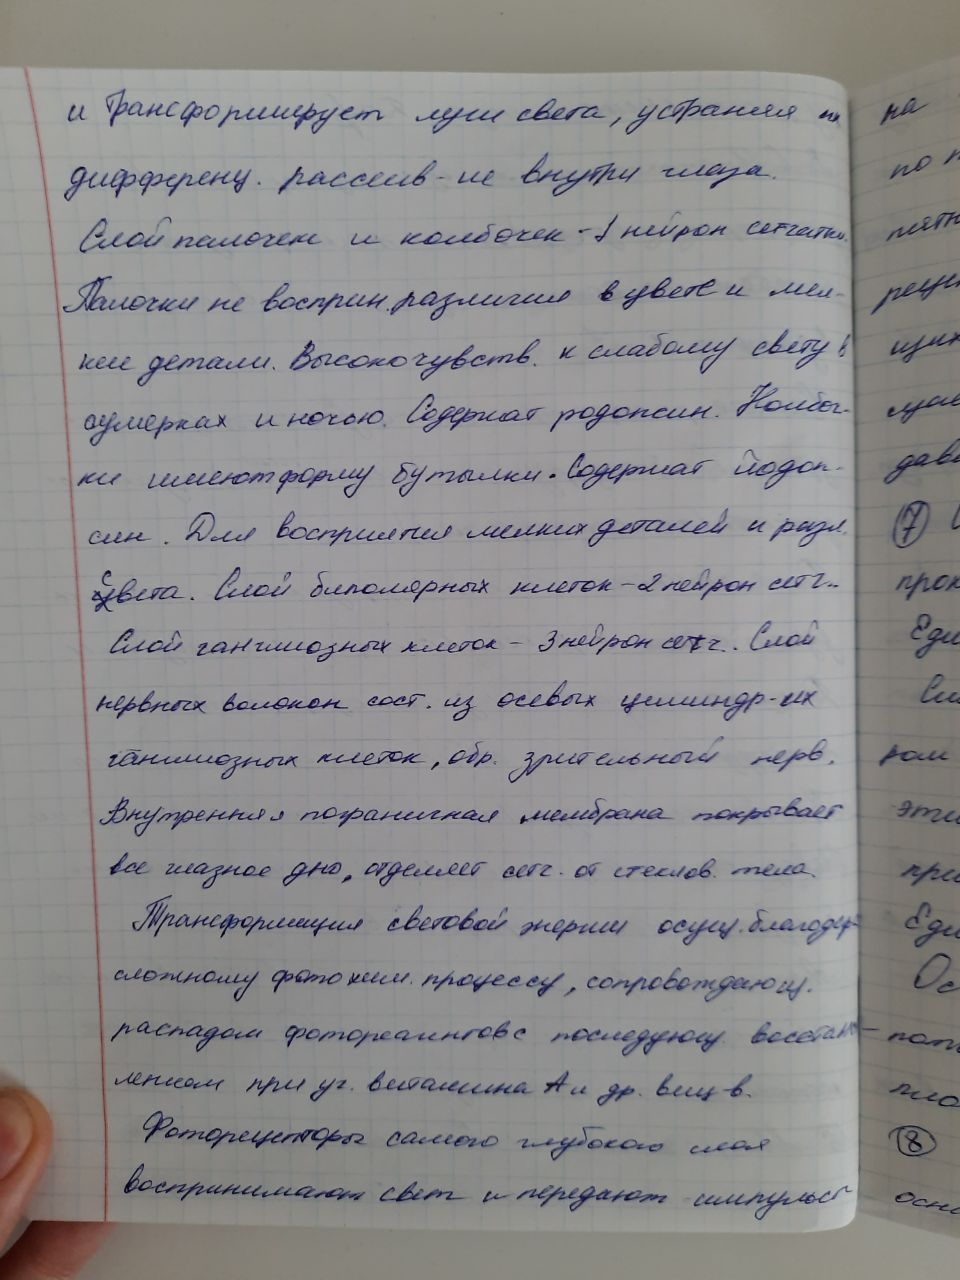 и трансформирует лучи света, устраняя их
дифференц. рассеив-ие внутри глаза.
Слой палочек и колбочек - 1 нейрон сетчатки.
Палочки не восприн. различия в цвете и мел-
кие детали. Высокочувств. к слабому свету в
сумерках и ночью. Содержат родопсин. Колбоч-
ки имеют форму бутылки. Содержат йодоп-
син. Для восприятия мелких деталей и разл.
цвета. Слой биполярных клеток - 2 нейрон сетч..
Слой ганглиозных клеток - 3 нейрон сетч.. Слой
нервных волокон сост. из осевых цилиндр-их
ганглиозных клеток, обр. зрительный нерв.
Внутренняя пограничная мембрана покрывает
все глазное дно, отделяет сетч. от стеклов. тела.
Трансформация световой энергии осущ. благодар.
сложному фотохим. процессу, сопровождающ.
распадом фотореагентов с последующ. восстанов-
лением при уч. витамина А и др. вещ-в.
Фоторецепторы самого глубокого слоя
воспринимают свет и передают импульс
на
по
7
прок
Еди
ром
эти
при
Еди
Ос
8
осно